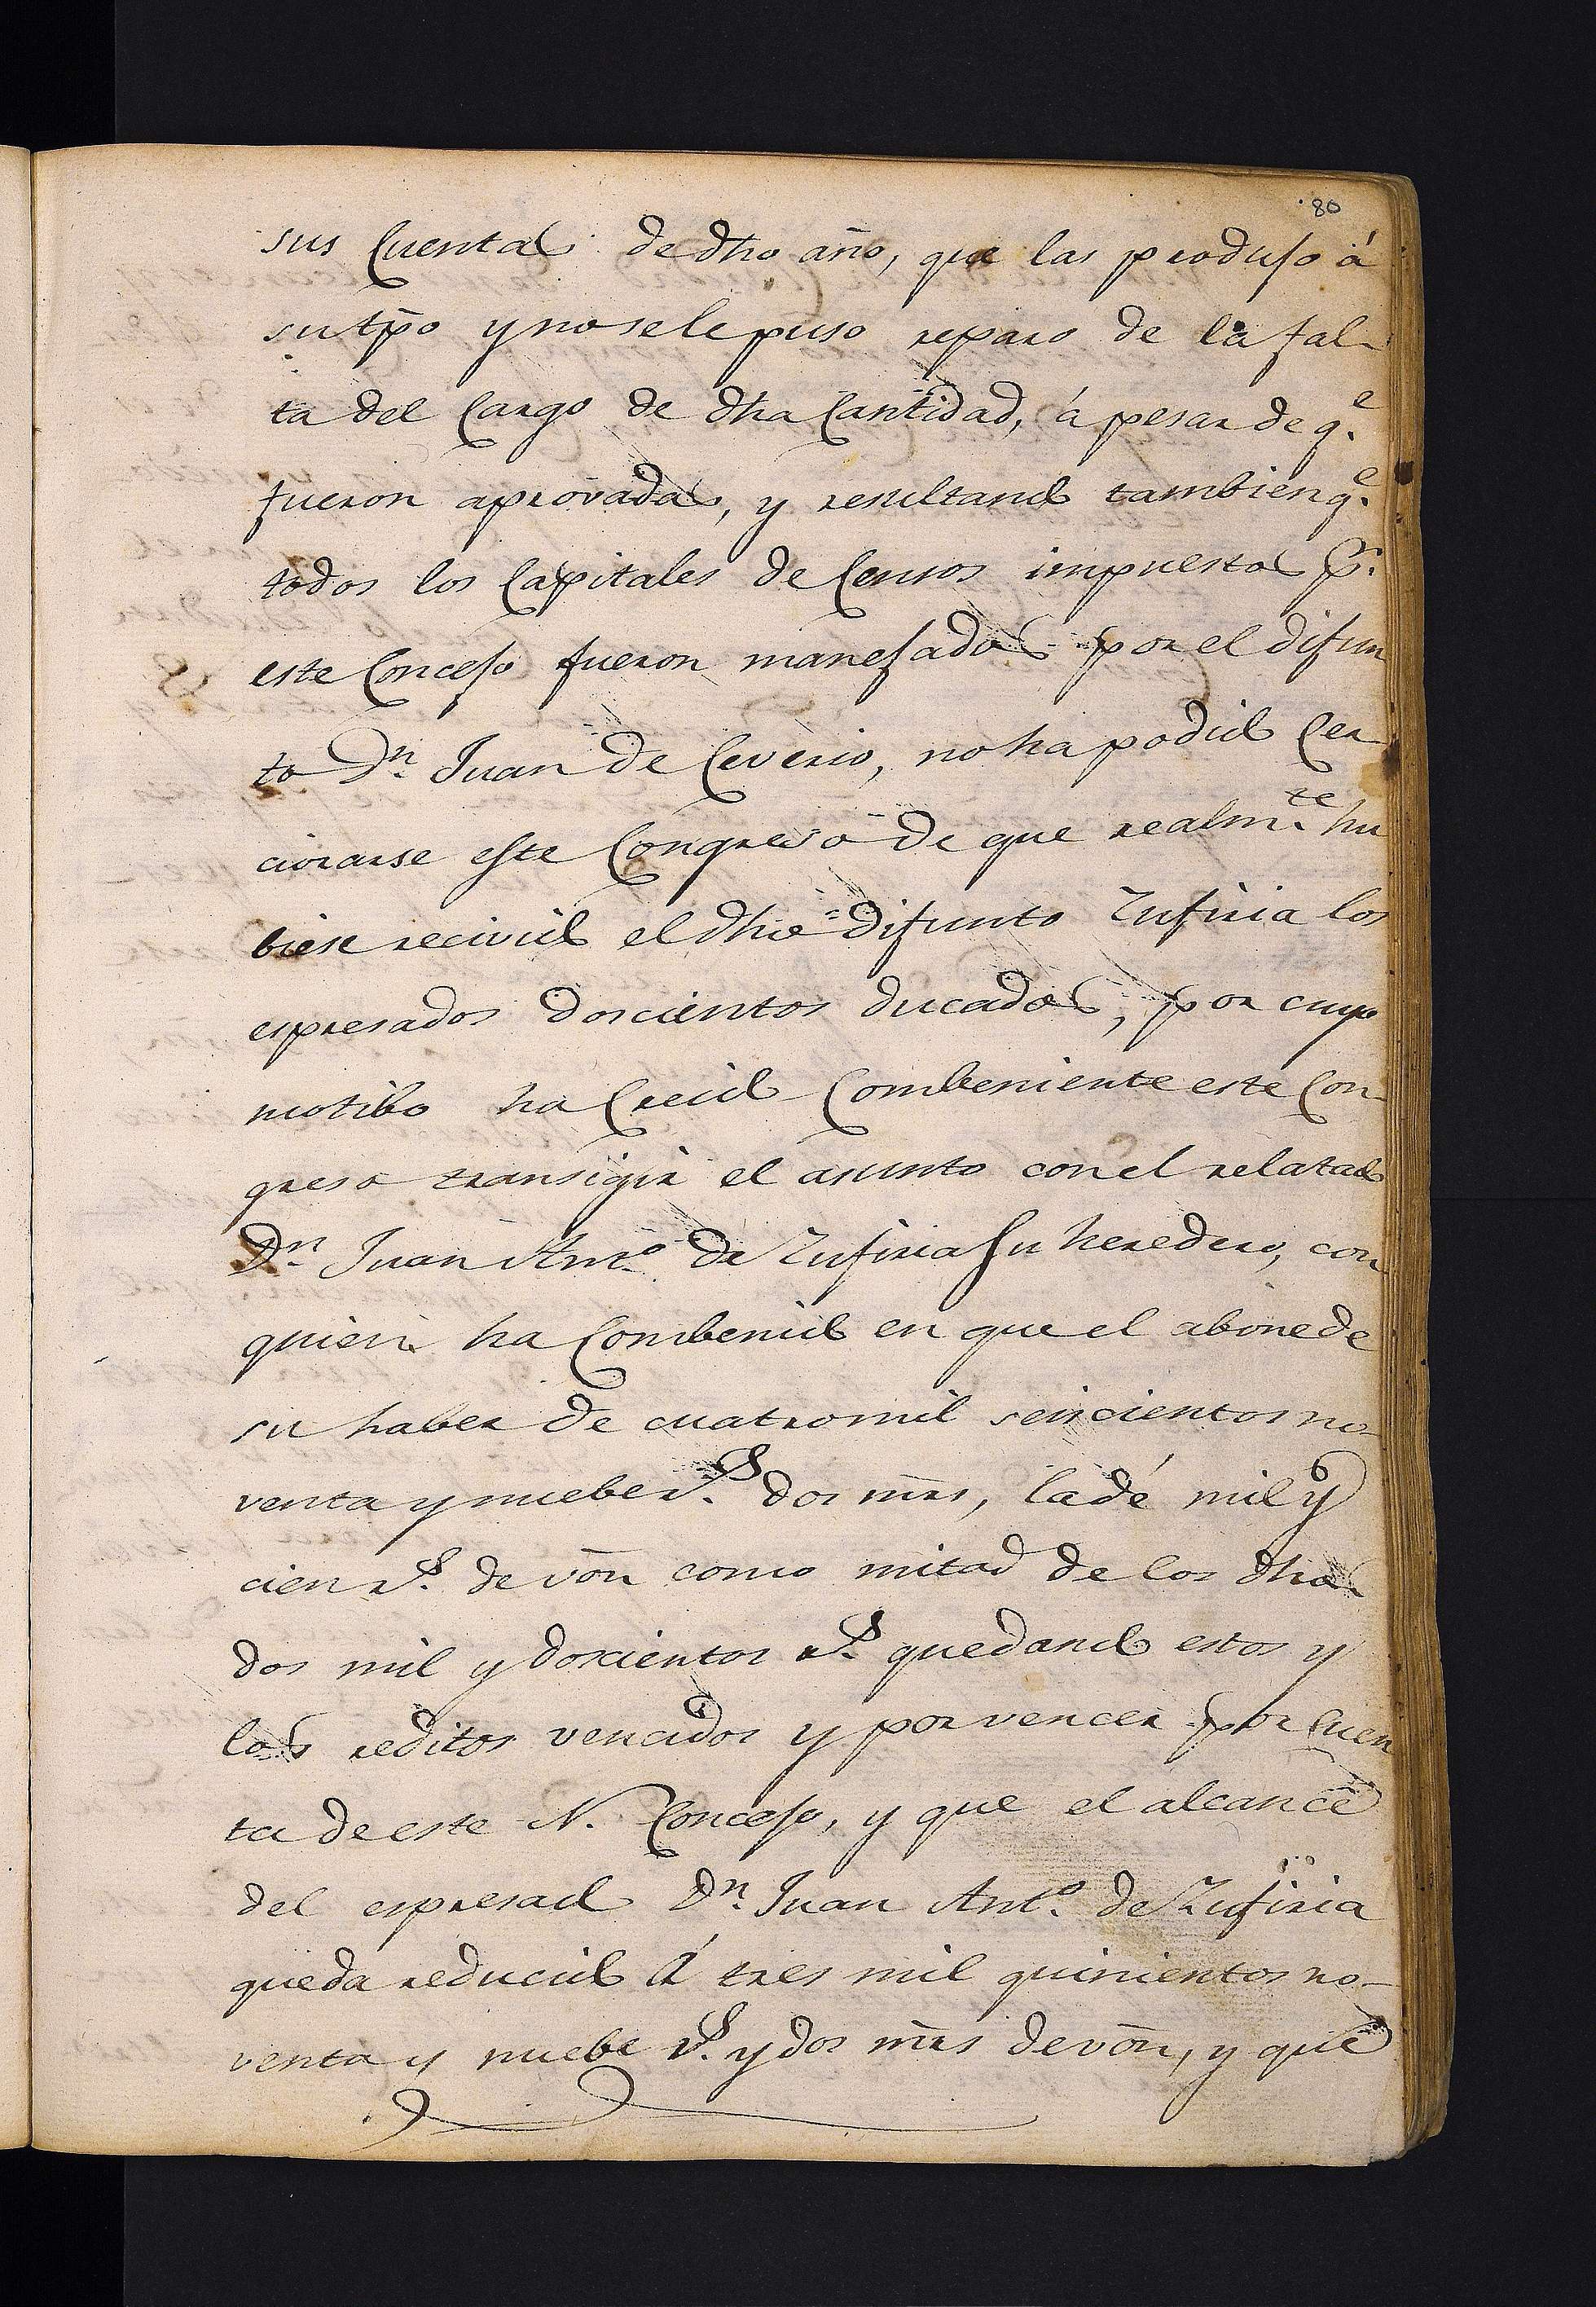 80
sus Cuentas de dho año, que las produjo á
su tpo y no se le puso reparo de la fal-
ta del Cargo de dha Cantidad, á pesar de q.e
fueron aprovadas, y resultando tambien q.e
todos los Capitales de Censos impuestos p.r
este Concejo fueron manejados por el difun
to Dn. Juan de Ceverio, no ha podido Cer
ciorarse este Congreso de que realm.te hu
biese recivido el dho difunto Zufiria los
espresados doscientos ducados, por cuyo
motibo ha Creido Combeniente este Con-
greso transigir el asunto con el relatado
Dn. Juan Anto. de Zufiria su heredero, con
quien ha Combenido en que el abone de
su haber de cuatro mil seiscientos no-
venta y nuebe r.s dos mrs, la de mil y
cien r.s de von como mitad de los dhos
dos mil y doscientos r.s quedando estos y
los reditos vencidos y por vencer por Cuen
ta de este N. Concejo, y que el alcance
del espresado Dn. Juan Anto. de Zufiria
queda reducido á tres mil quinientos no-
venta y nuebe r.s y dos mrs de von, y que